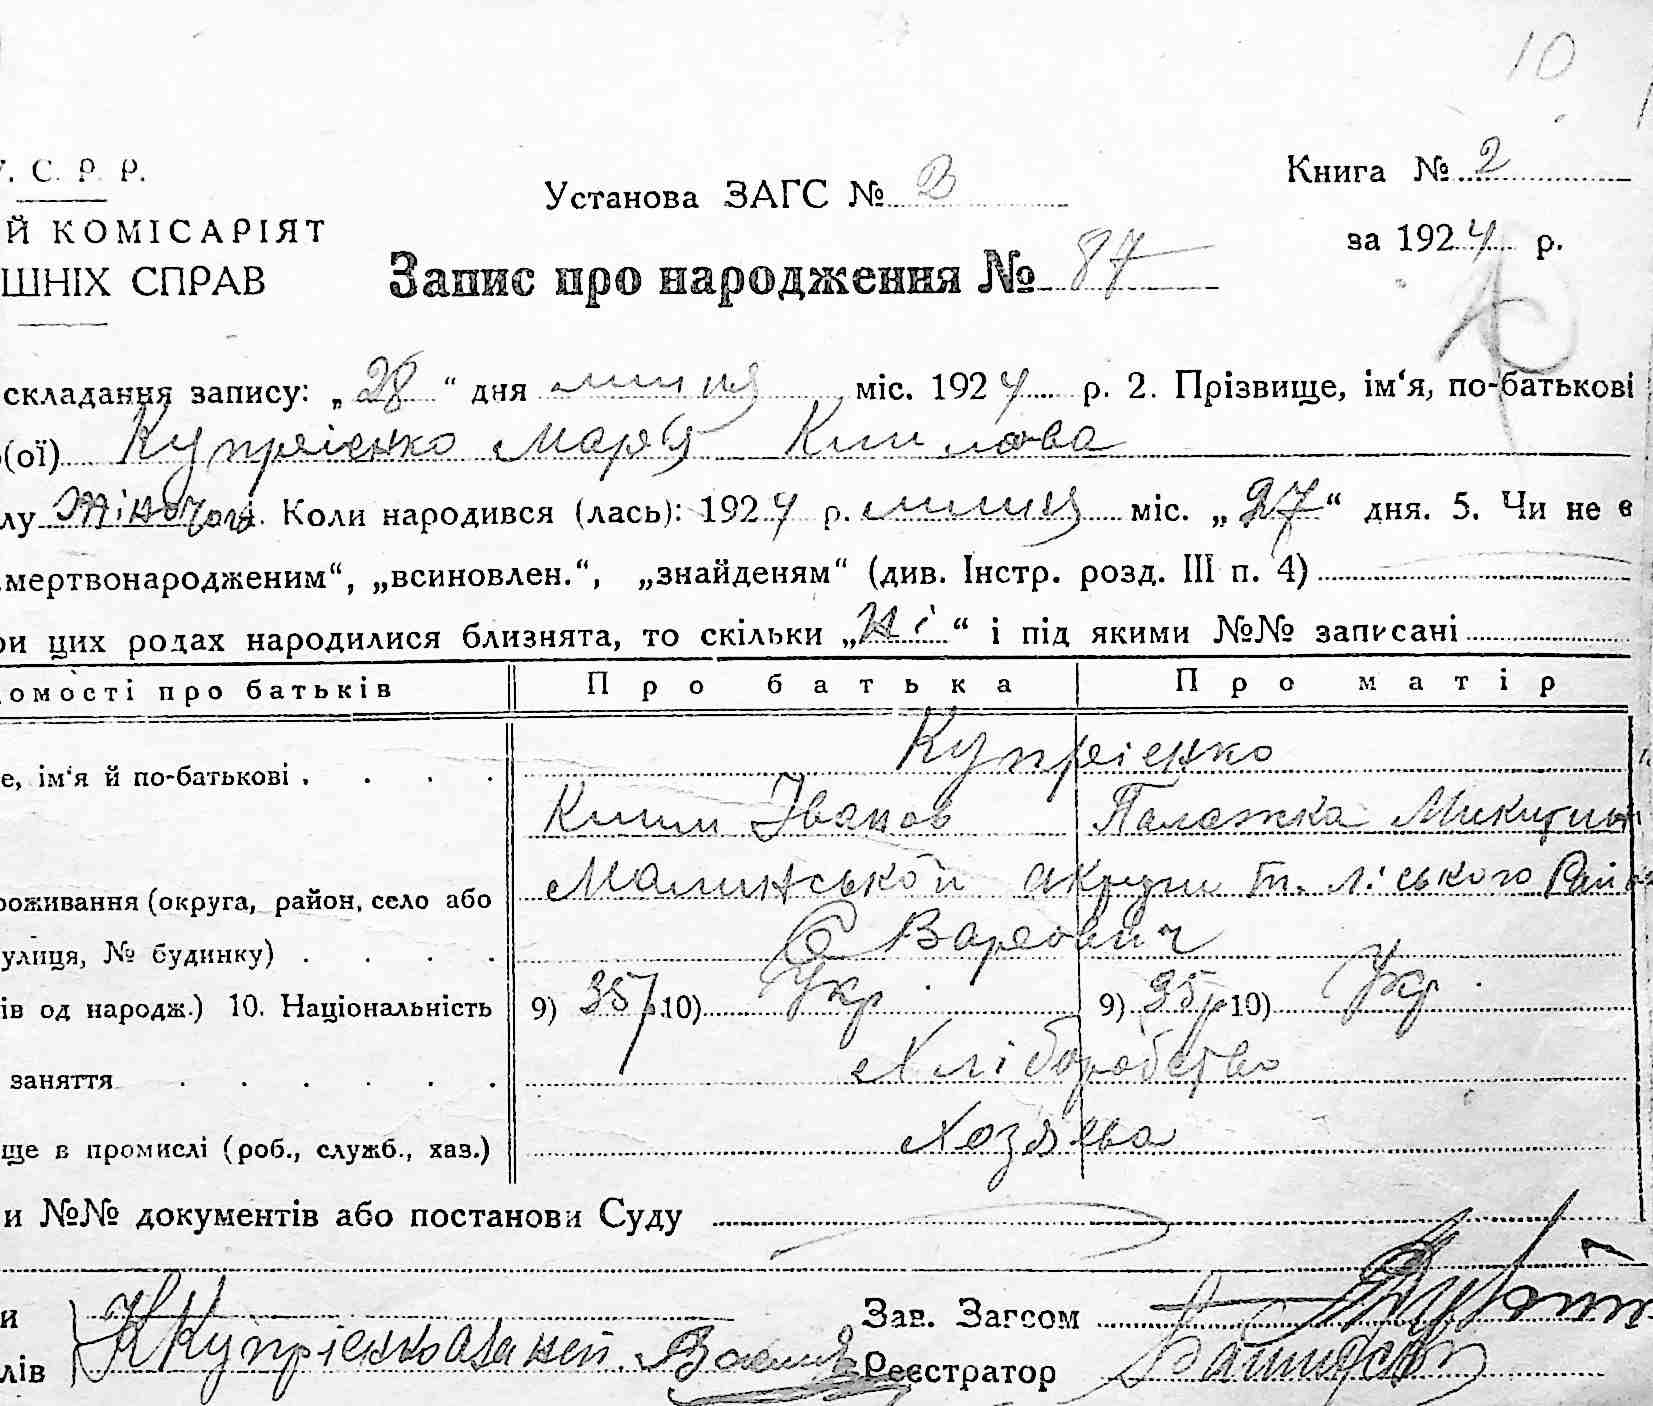 10
У. С. Р. Р.
Книга № 2
Установа ЗАГС № 3
Й КОМІСАРІЯТ
за 1924 р.
ШНІХ СПРАВ
Запис про народження № 87
складання запису: „28“ дня липня міс. 1924 р. 2. Прізвище, ім‘я, по-батькові
(ої) Купрієнко Марія Климова
лу жіночого. Коли народився (лась): 1924 р. липня міс. „27“ дня. 5. Чи не є
мертвонародженим“, „всиновлен.“, „знайденям“ (див. Інстр. розд. III п. 4)
ри цих родах народилися близнята, то скільки „Ні“ і під якими №№ записані
домості про батьків Про батька Про матір
е, ім‘я й по-батькові . . . . Купрієнко
Клим Іванов Палажка Микитина
роживання (округа, район, село або Малинської округи Т. Ліського Рай
улиця, № будинку) . . . . С Варовичі
ів од народж.) 10. Національність 9) 35 р. 10) Укр. 9) 35 р 10) Укр.
заняття . . . . . . Хліборобство
ще в промислі (роб., служб., хаз.) Хозяєва
и №№ документів або постанови Суду
и Зав. Загсом
лів Купрієнко Реєстратор